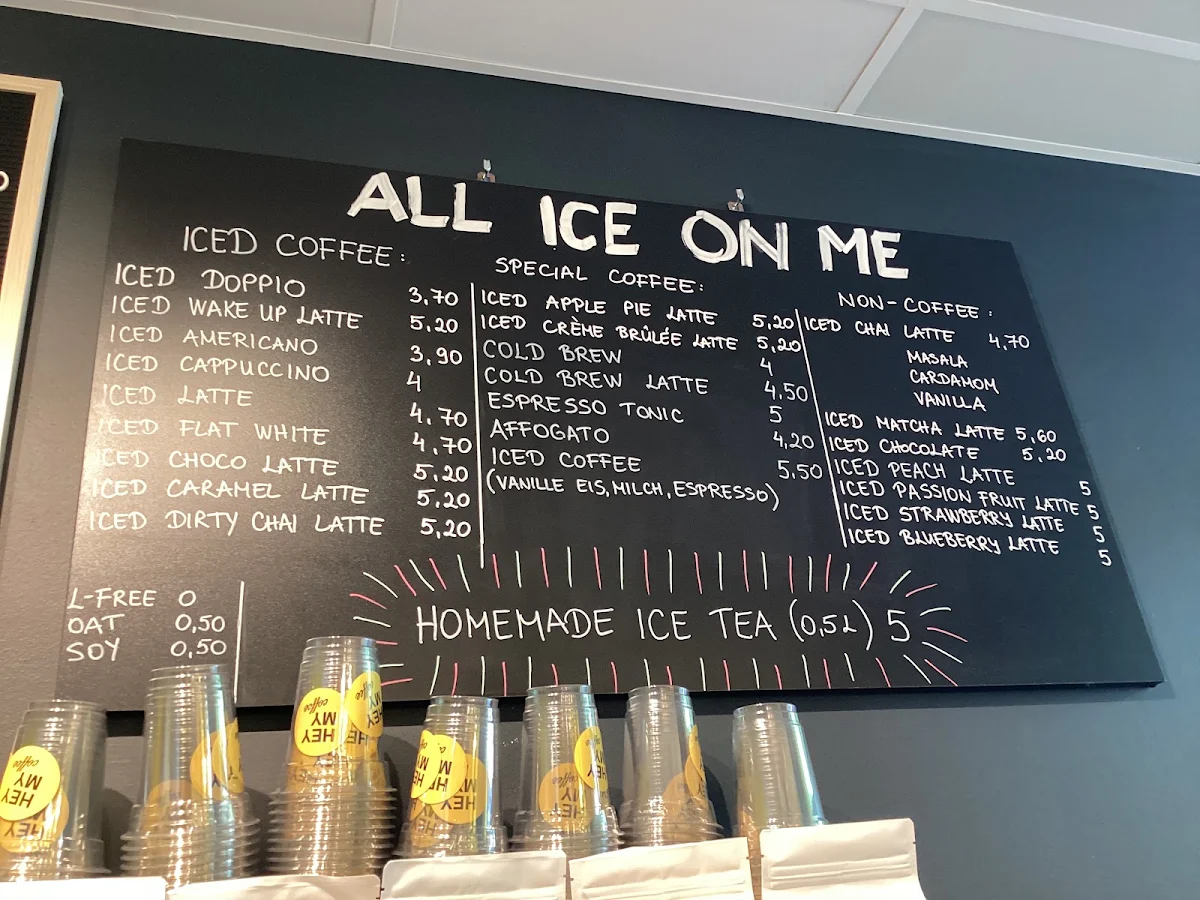 ALL ICE ON ME
ICED COFFEE:
ICED DOPPIO 3,70
ICED WAKE UP LATTE 5,20
ICED AMERICANO 3,90
ICED CAPPUCCINO 4
ICED LATTE 4,70
ICED FLAT WHITE 4,70
ICED CHOCO LATTE 5,20
ICED CARAMEL LATTE 5,20
ICED DIRTY CHAI LATTE 5,20
L-FREE 0
OAT 0,50
SOY 0,50
SPECIAL COFFEE:
ICED APPLE PIE LATTE 5,20
ICED CRÈME BRÛLÉE LATTE 5,20
COLD BREW 4
COLD BREW LATTE 4,50
ESPRESSO TONIC 5
AFFOGATO 4,20
ICED COFFEE 5,50
(VANILLE EIS, MILCH, ESPRESSO)
NON-COFFEE:
ICED CHAI LATTE 4,70
MASALA
CARDAMOM
VANILLA
ICED MATCHA LATTE 5,60
ICED CHOCOLATE 5,20
ICED PEACH LATTE 5
ICED PASSION FRUIT LATTE 5
ICED STRAWBERRY LATTE 5
ICED BLUEBERRY LATTE 5
HOMEMADE ICE TEA (0,5L) 5
HEY
MY
coffee
HEY
MY
coffee